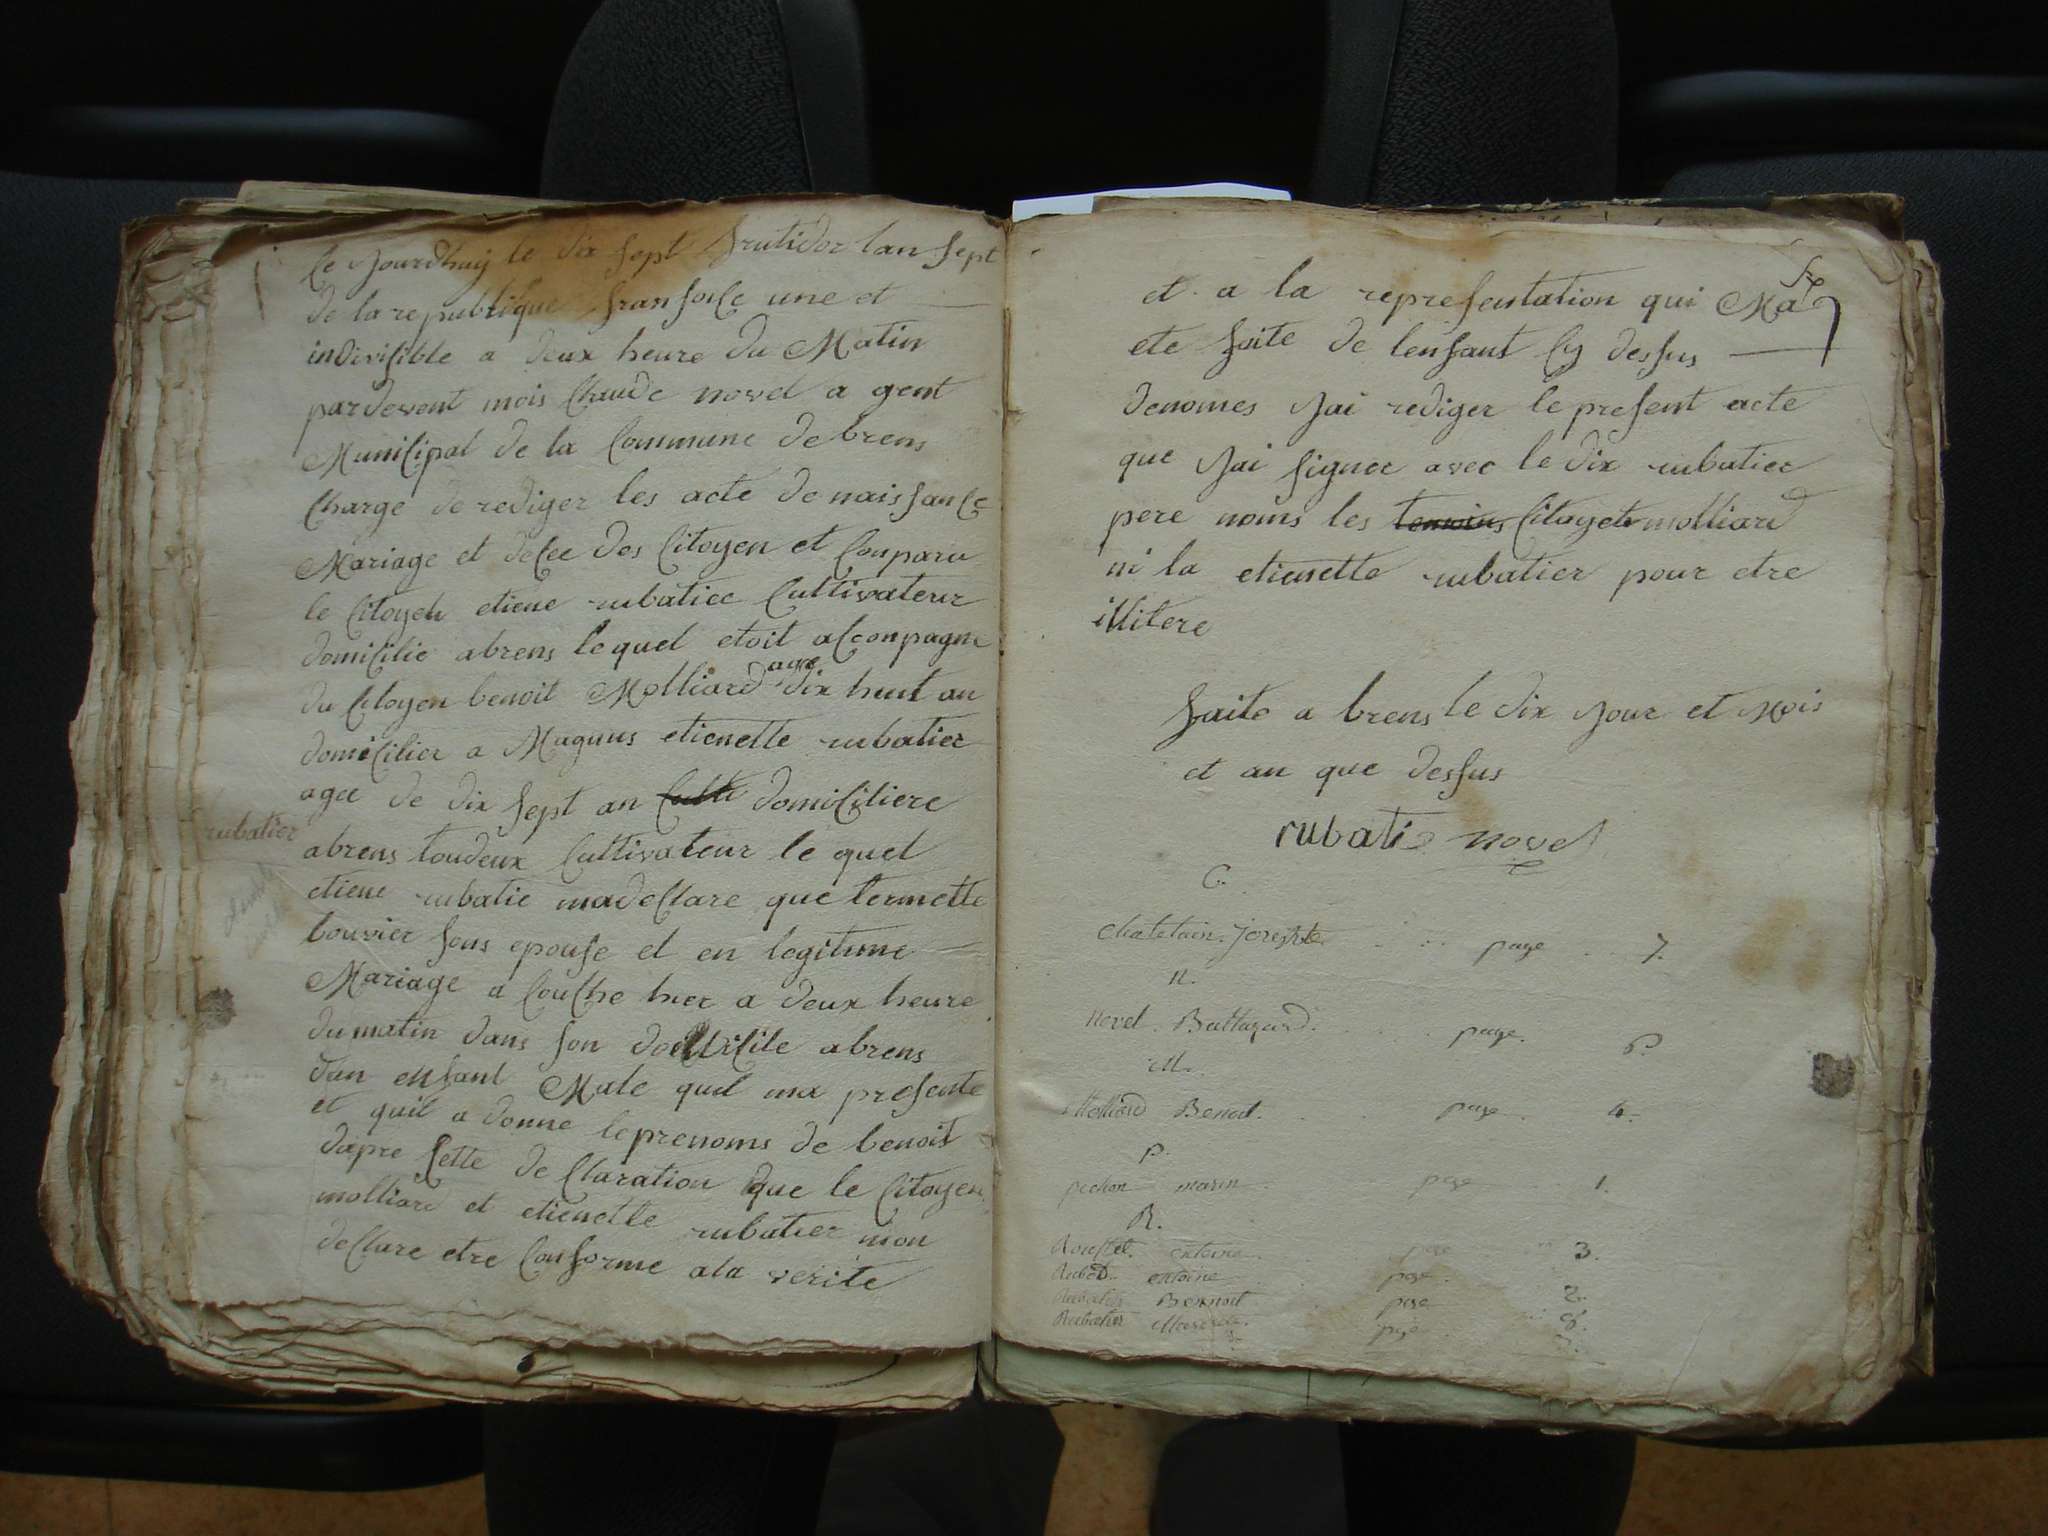 Ce jourdhuy le dix sept frutidor lan sept
de la republique fransoise une et
indivicible a deux heure du Matin
pardevent mois Claude novel a gent
Municipal de la Commune de brens
Charge de rediger les acte de naissance
Mariage et decee des Citoyen et Conparu
le Citoyen etiene rubatier Cultivateur
domicilie abrens lequel etoit alconpagne
du Citoyen benoit Molliard age dix huit an
domicilier a Magnus etienette rubatier
agee de dix sept an domiciliere
rubatier
abrens toudeux Cultivateur le quel
etiene rubatie madeclare que
bouvier sons epouse et en legitime
Mariage a Couche hier a deux heure
du matin dans son domicile abrens
dun enfant Male quil ma presente
et quil a donne leprenoms de benoit
dapre Cette declaration que le Citoyen
molliard et etienette rubatier mon
declare etre Conforme ala verite
7
et a la representation qui Ma
ete faite de lenfant Cy dessus
denomes Jai rediger le present acte
que Jai signer avec le dix rubatier
pere noms les temoins Citoyen molliard
ni la etienette rubatier pour etre
illitere
faite a brens le dix Jour et Mois
et an que dessus
rubatie novel
C.
Chatelain. page 7.
n.
Novel. Baltazard. page. 6.
M.
Molliard Benoit. page 4.
P.
pechon marin page 1.
R.
page 3.
Rubod. antoine page 2.
Rubatier Bennoit page 8.
Rubatier page